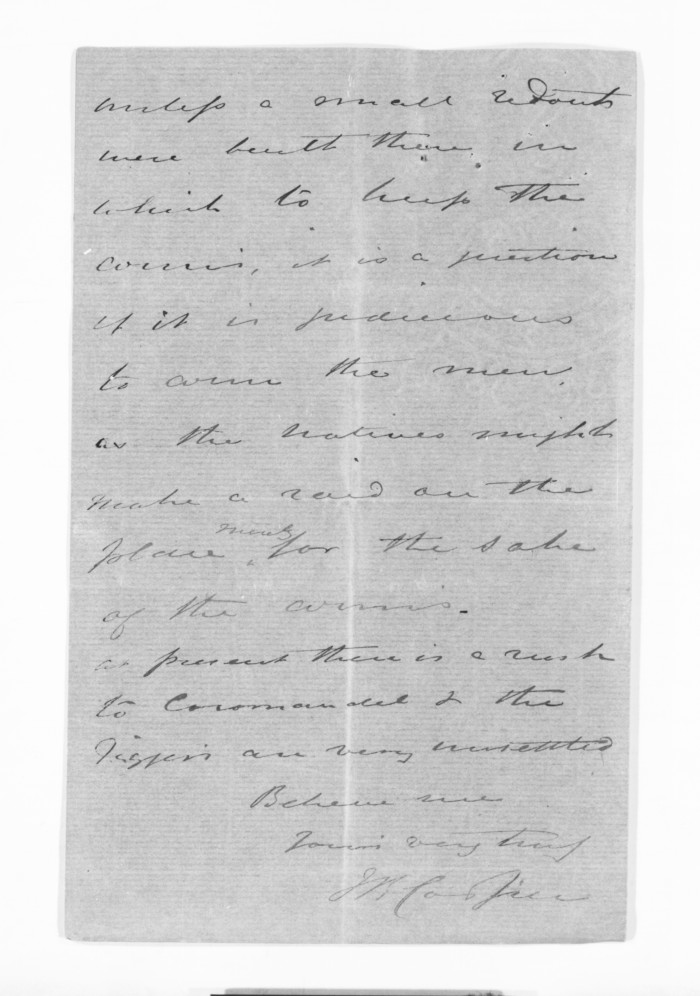 unless a small redoubt
were built there in
which to keep the
arms, it is a question
if it is judicious
to arm the men,
as the Natives might
make a raid on the
place merely for the sake
of the arms.
at present there is a rush
to Coromandel & the
Diggers are very unsettled
Believe me
Yours very truly